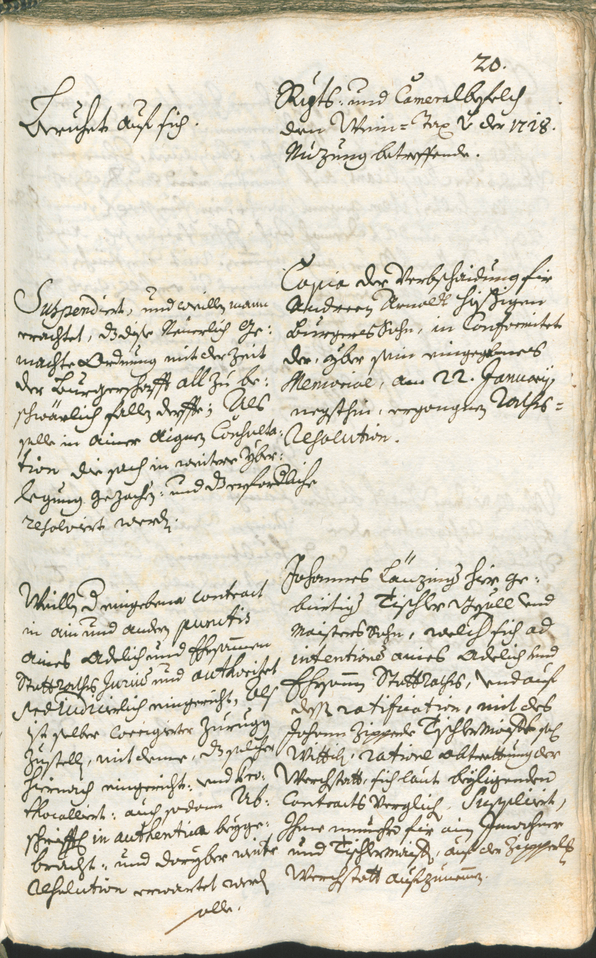 20.
Beruhet auf sich.
Rhts: und Cameralbefelch
den Wein-Tax der 1728.
Nuzung betreffende.
Suspendiert, und weillen mann
erachtet, dß dise Neuerlich Ge-
machte Ordnung mit der Zeit
der Burgerschafft all zu be-
schwärlich fallen derffte; Als
solle in ainer aignen Consulta-
tion die sach in weitere Yber-
legung gezochen: und dß erforderliche
resolviert werden.
Copia der Verbschaidung für
Andreen Arnoldt hießigen
Burgers Sohn, in Conformitet
der, yber sein eingegebnes
Memorial, am 22. January,
negsthin, ergangnen Raths-
Resolution.
Weillen dß eingebene Contract
in ain und andern punctis
aines Adelich und
Stattraths Jurius und authoritet
praejudicierlich eingericht, Als
ist selber zurugg
zustellen, mit deme, dß solcher
hiernach eingericht: und pro-
thocolliert: auch sodann Ab-
schrifft in authentica beyge-
bracht: und dariber weitere
resolution erwartet werden
solle.
Johannes Länzing hier ge-
birtig Tischler gsell und
Maisters Sohn, welch sich ad
intentionem aines Adelich und
Stattraths, und auf
dessen ratification, mit des
Johann Zipperle Tischlermaisters sel.
Wittib, ratione abtrettung der
Werchstatt, sich laut beyligenden
Contracts Verglichen, Suppliciert,
Ihne nunmehr für ain Inwohner
und Tischlermaister, auf der Zipperle
Werchstatt aufzunemen.